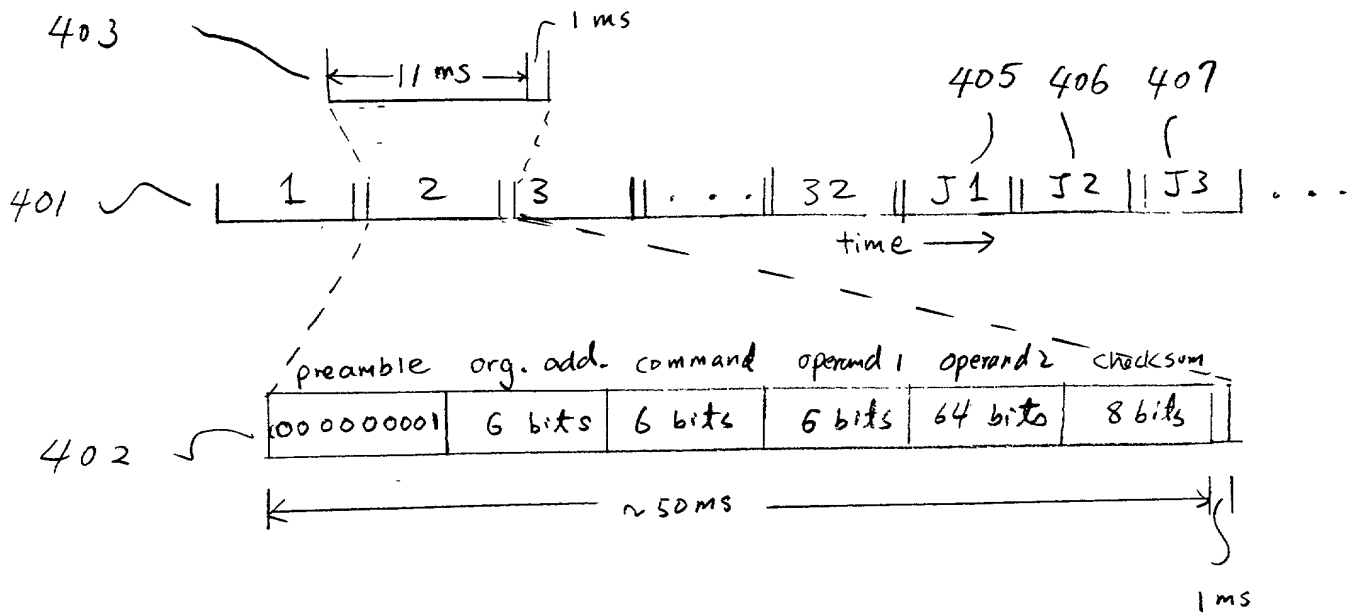 403
1 ms
11 ms
405 406 407
401
1 2 3 . . . 32 J1 J2 J3 . . .
time
preamble org. add. command operand 1 operand 2 checksum
000000001 6 bits 6 bits 6 bits 64 bits 8 bits
402
~50ms
1 ms